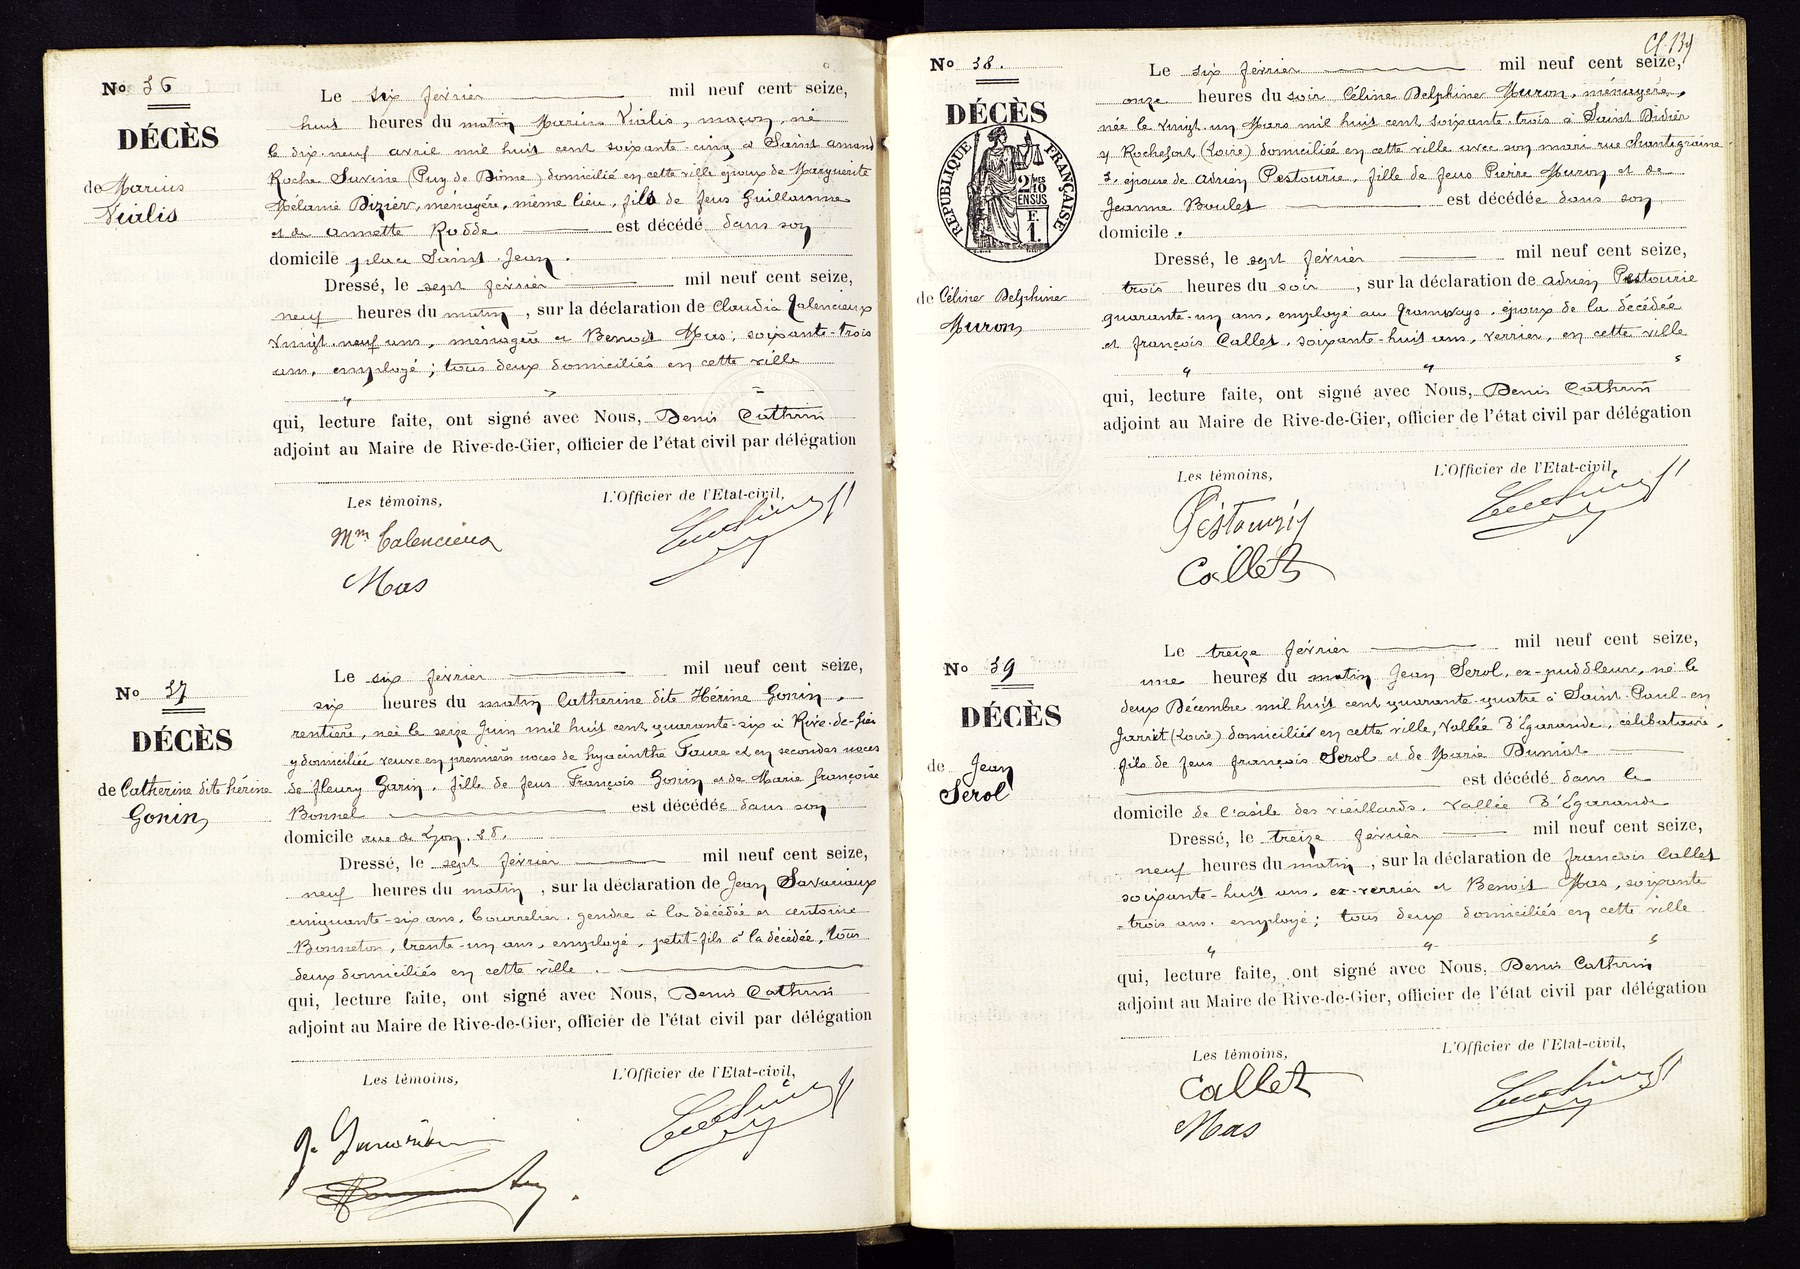 No 36
DÉCÈS
de Marius
Vialis
Le six février mil neuf cent seize,
huit heures du matin Marius Vialis, maçon, né
le dix-neuf avril mil huit cent soixante-cinq à Saint amand
Roche Savine (Puy de Dôme) domicilié en cette ville époux de Marguerite
Mélanie Dizier, ménagère, même lieu, fils de feus Guillaume
et de annette Rodde est décédé dans son
domicile place Saint-Jean.
Dressé, le sept février mil neuf cent seize,
neuf heures du matin, sur la déclaration de Claudia Valencieux
vingt-neuf ans, ménagère et Benoit Mas, soixante-trois
ans, employé; tous deux domiciliés en cette ville
" "
qui, lecture faite, ont signé avec Nous, Denis Cathrin
adjoint au Maire de Rive-de-Gier, officier de l'état civil par délégation
Les témoins, L'Officier de l'Etat-civil,
Mas
No 37
DÉCÈS
de Catherine dite hérine
Gonin
Le six février mil neuf cent seize,
six heures du matin Catherine dite Hérine Gonin,
rentière, née le seize Juin mil huit cent quarante-six à Rive-de-Gier
y domiciliée veuve en premières noces de hyacinthe Faure et en secondes noces
de fleury Garin, fille de feus François Gonin et de Marie françoise
Bonnel est décédée dans son
domicile rue de Lyon, 28.
Dressé, le sept février mil neuf cent seize,
neuf heures du matin, sur la déclaration de Jean Savariaux
cinquante-six ans, bourrelier, gendre à la décédée et antoine
Bonneton, trente-un ans, employé, petit-fils à la décédée, tous
deux domiciliés en cette ville.
qui, lecture faite, ont signé avec Nous, Denis Cathrin
adjoint au Maire de Rive-de-Gier, officier de l'état civil par délégation
Les témoins, L'Officier de l'Etat-civil,
No 38.
DÉCÈS
RÉPUBLIQUE FRANÇAISE
2/10 MES
EN SUS
F.
1.
de Céline Delphine
Muron
Le six février mil neuf cent seize,
onze heures du soir Céline Delphine Muron, ménagère,
née le vingt-un Mars mil huit cent soixante-trois à Saint Didier
s/ Rochefort (Loire) domiciliée en cette ville avec son mari rue chantegraine
3, épouse de adrien Pestourie, fille de feus Pierre Muron et de
Jeanne Boulet est décédée dans son
domicile.
Dressé, le sept février mil neuf cent seize,
trois heures du soir, sur la déclaration de adrien Pestourie
quarante-un ans, employé au Tramways, époux de la décédée
et françois Callet, soixante-huit ans, verrier, en cette ville
" " "
qui, lecture faite, ont signé avec Nous, Denis Cathrin
adjoint au Maire de Rive-de-Gier, officier de l'état civil par délégation
Les témoins, L'Officier de l'Etat-civil,
Callet
No 39
DÉCÈS
de Jean
Serol
Le treize février mil neuf cent seize,
une heures du matin Jean Serol, ex-puddleur, né le
deux Décembre mil huit cent quarante-quatre à Saint-Paul-en
Jarret (Loire) domicilié en cette ville, Vallée D'Egarande, célibataire,
fils de feus françois Serol et de Marie
est décédé dans le
domicile de l'asile des vieillards, vallée D'Egarande
Dressé, le treize février mil neuf cent seize,
neuf heures du matin, sur la déclaration de francois Callet
soixante-huit ans, ex-verrier et Benoit Mas, soixante
-trois ans, employé; tous deux domiciliés en cette ville
" " "
qui, lecture faite, ont signé avec Nous, Denis Cathrin
adjoint au Maire de Rive-de-Gier, officier de l'état civil par délégation
Les témoins, L'Officier de l'Etat-civil,
Callet
Mas